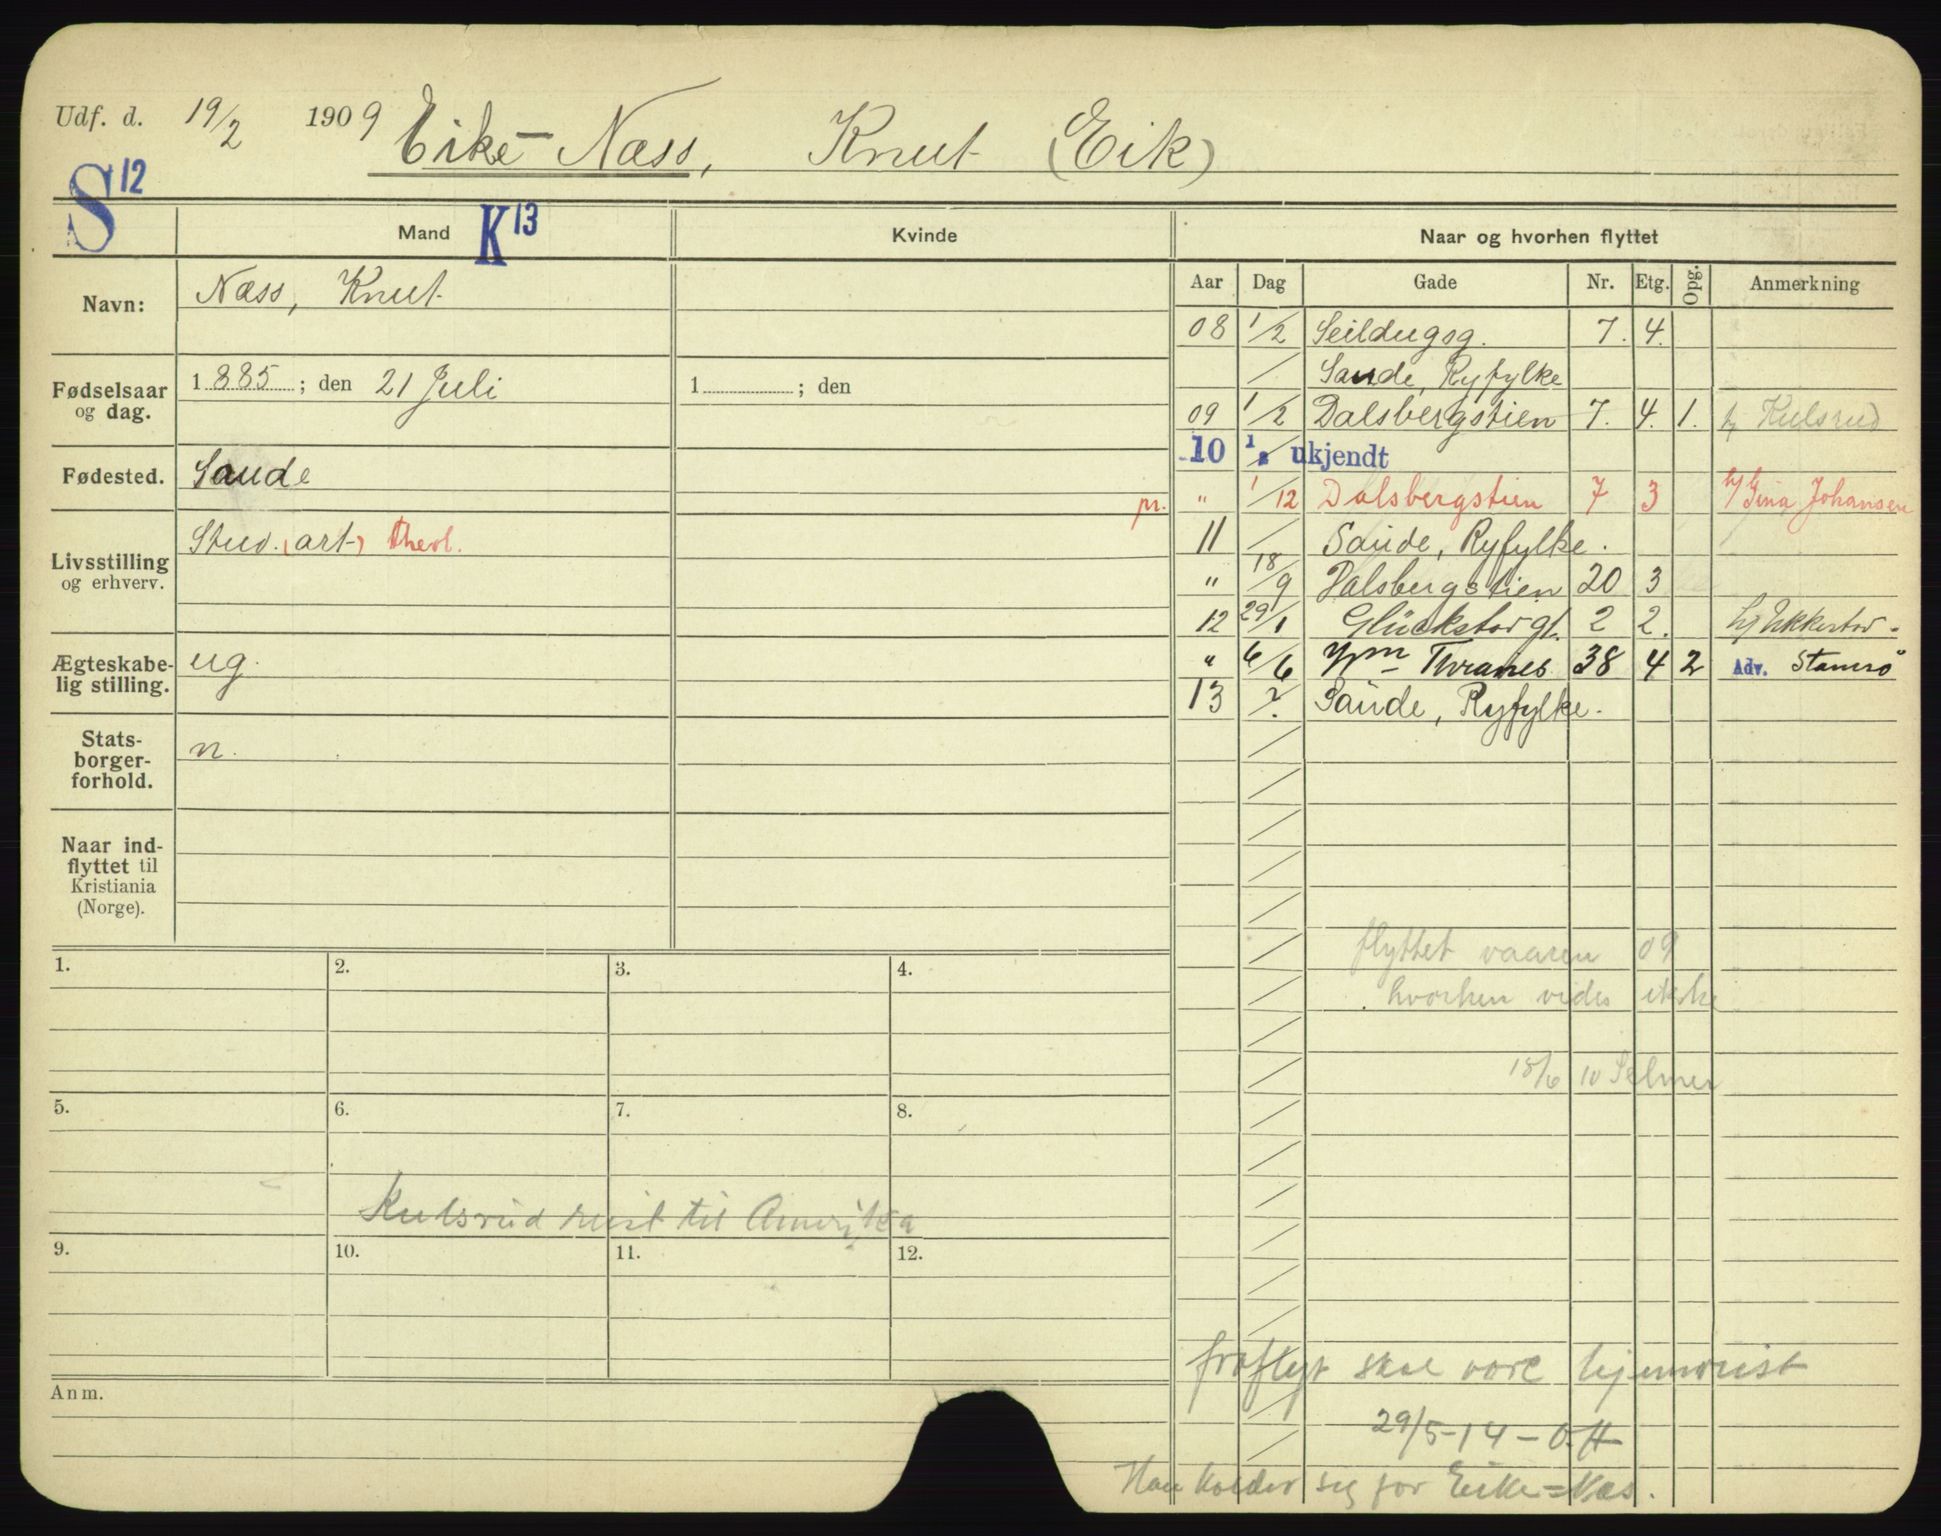 Udf. d. 19/2 1909 Eike-Næss, Knut (Eik)
S 12
Mand K 13 Kvinde Naar og hvorhen flyttet
Aar Dag Gade Nr. Etg. Opg. Anmerkning
Navn: Næss, Knut
Fødselsaar og dag. 1885; den 21 Juli 1 ; den
Fødested. Saude
Livsstilling og erhverv. Stud. (art) theol.
Ægteskabelig stilling. ug.
Statsborgerforhold. n.
Naar indflyttet til Kristiania (Norge).
08 1/2 Seildugsg. 7. 4.
Saude, Ryfylke
09 1/2 Dalsbergstien 7. 4. 1. h/ Kulsrud
10 1/2 ukjendt
pr. " 1/12 Dalsbergstien 7 3 h/ Gina Johansen
11 / Saude, Ryfylke.
" 18/9 Dalsbergstien 20 3
12 29/1 Glückstorgt. 2 2.
" 6/6 Wm Thranes 38 4 2 Adv.
13 ?/ Saude, Ryfylke.
flyttet vaaren 09
hvorhen vides ikke
18/6 10 Selmer
1. 2. 3. 4.
5. 6. 7. 8.
Kulsrud reist til Amerika
9. 10. 11. 12.
fraflyt skal være hjemreist
Anm.
29/5-14-
Han kalder sig for Eike=Næs.